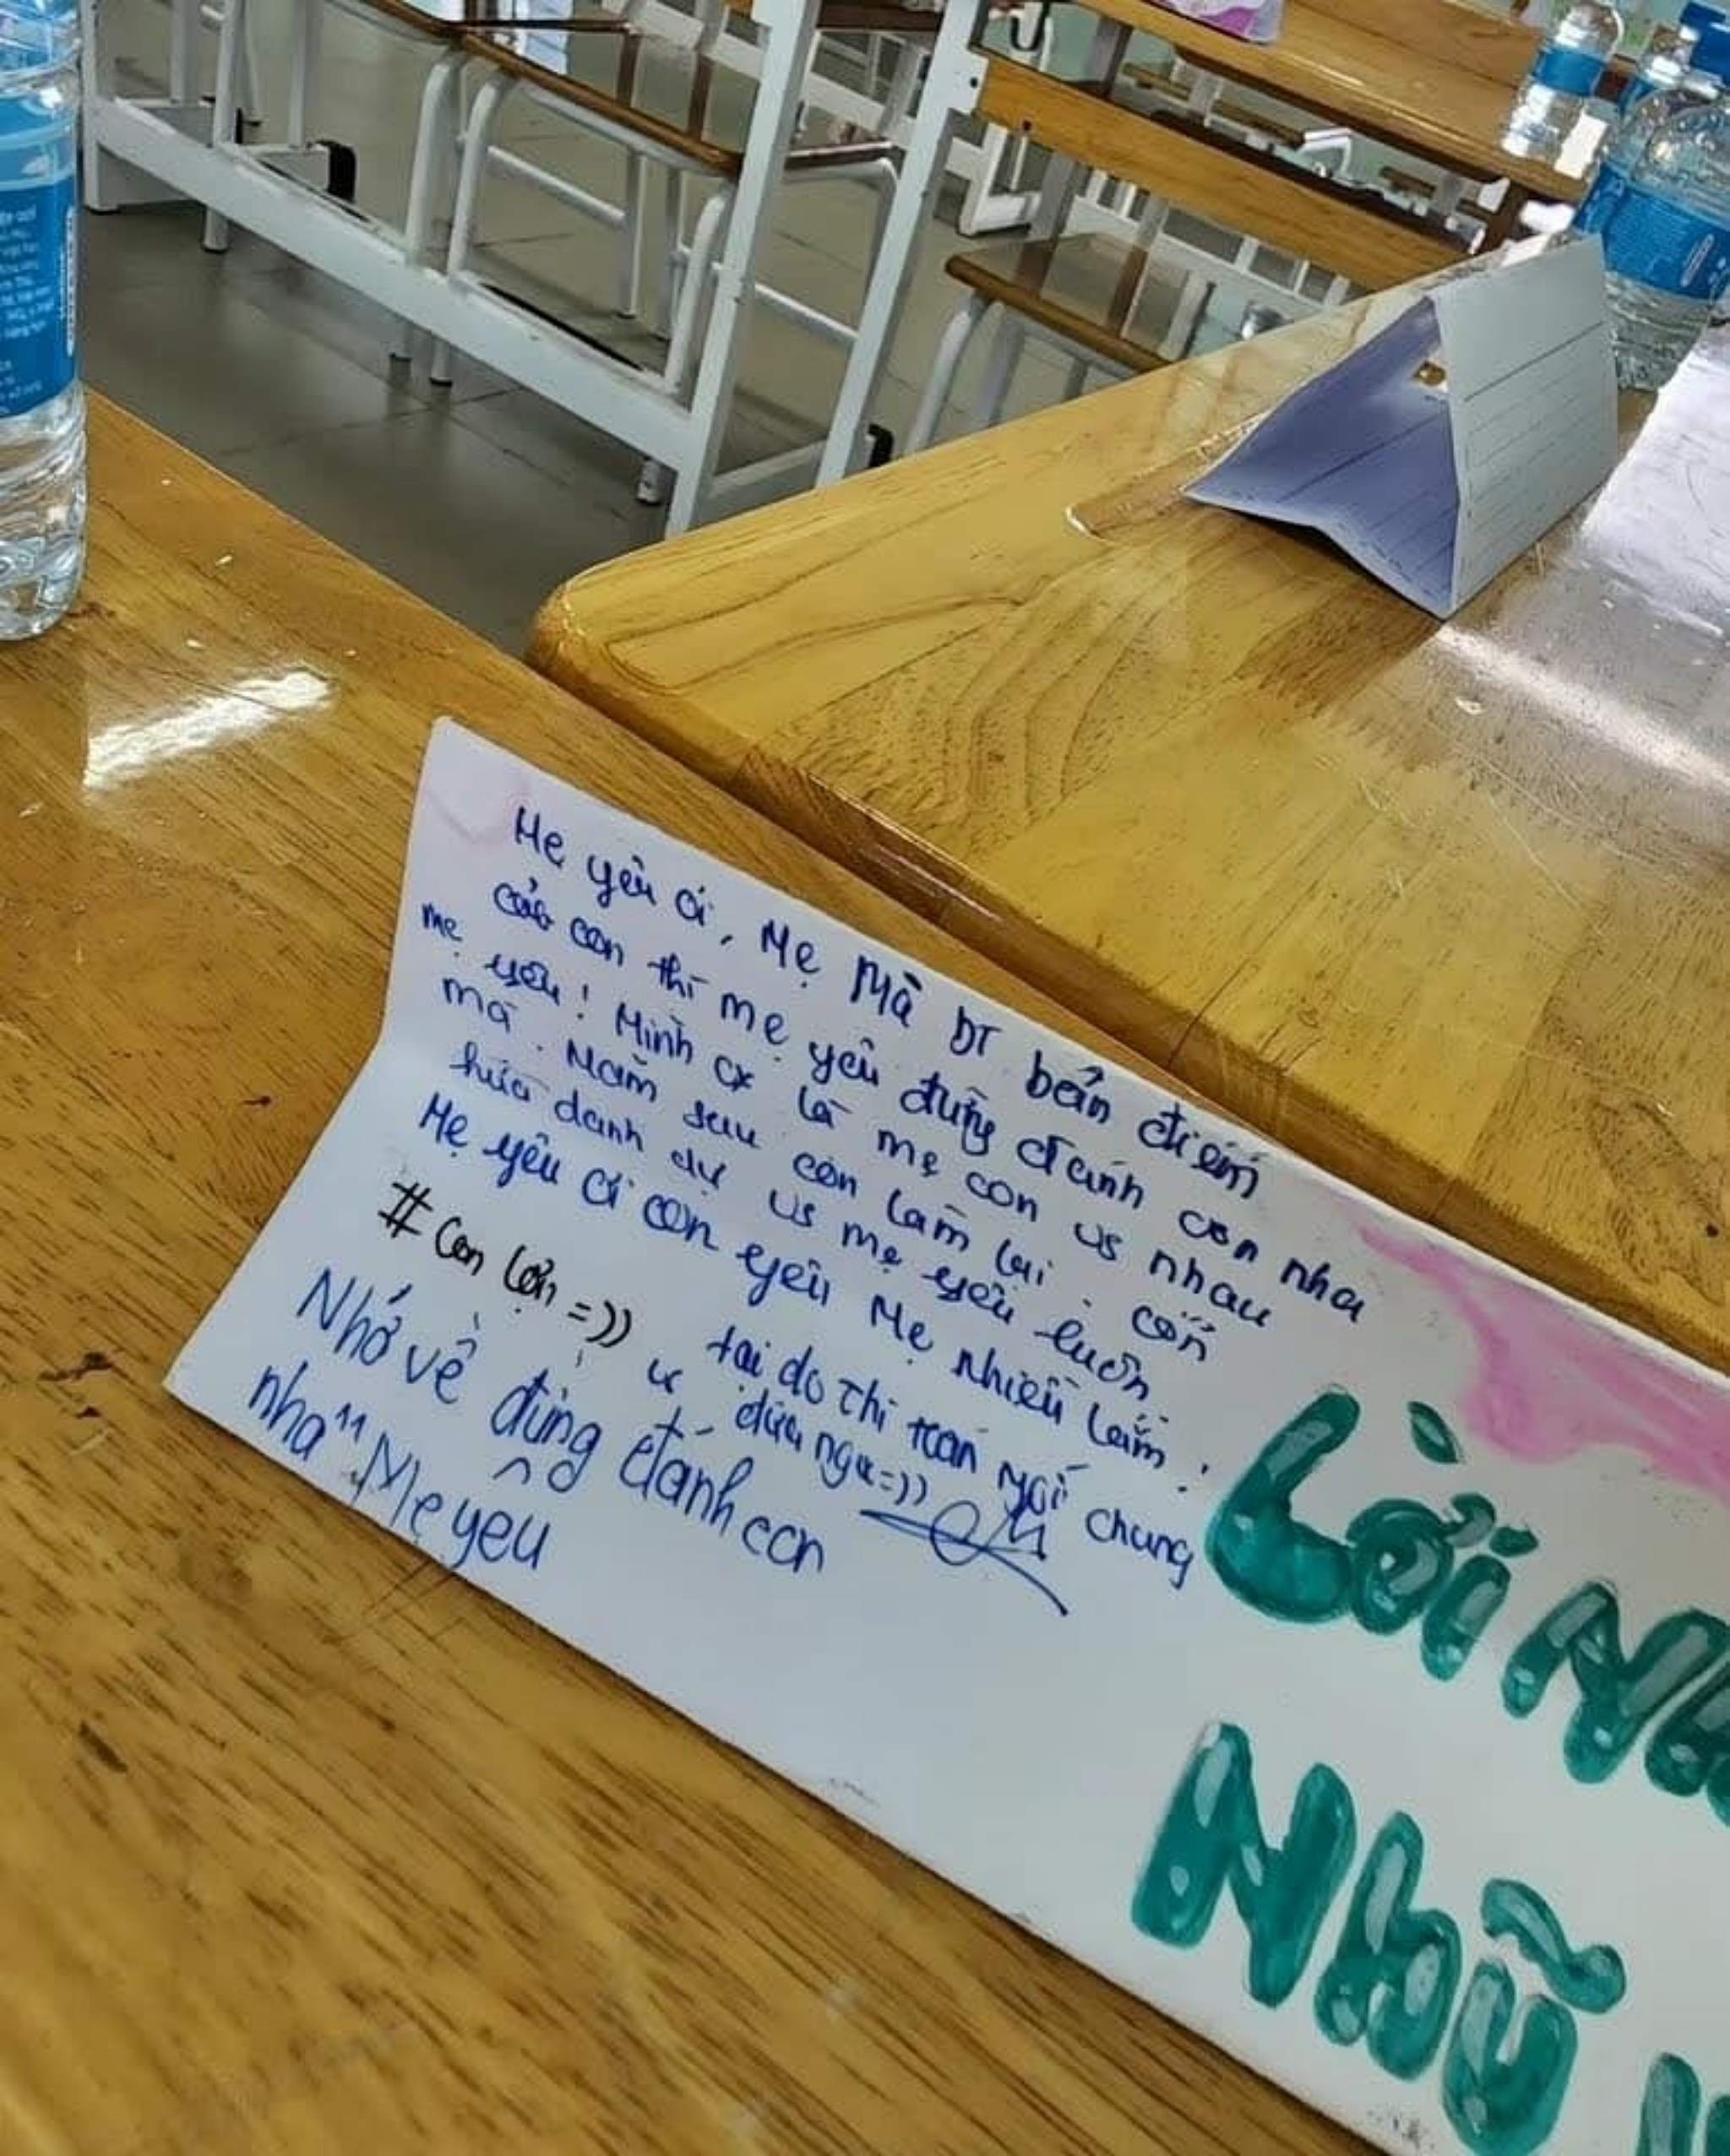 Mẹ yêu ơi, Mẹ Mà bt bẻn điểm
của con thì mẹ yêu đừng đánh con nha
mẹ yêu! Mình cx là mẹ con vs nhau
mà. Năm sau con làm lại. Còn
hứa danh dự vs mẹ yêu luôn.
Mẹ yêu ơi con yêu Mẹ nhiều lắm!
#Con lợn =)) tại do thi toán ngồi chung
vs đứa ngu =))
Nhớ về đừng đánh con
nha "Mẹ yêu
Lời N
Nhũ